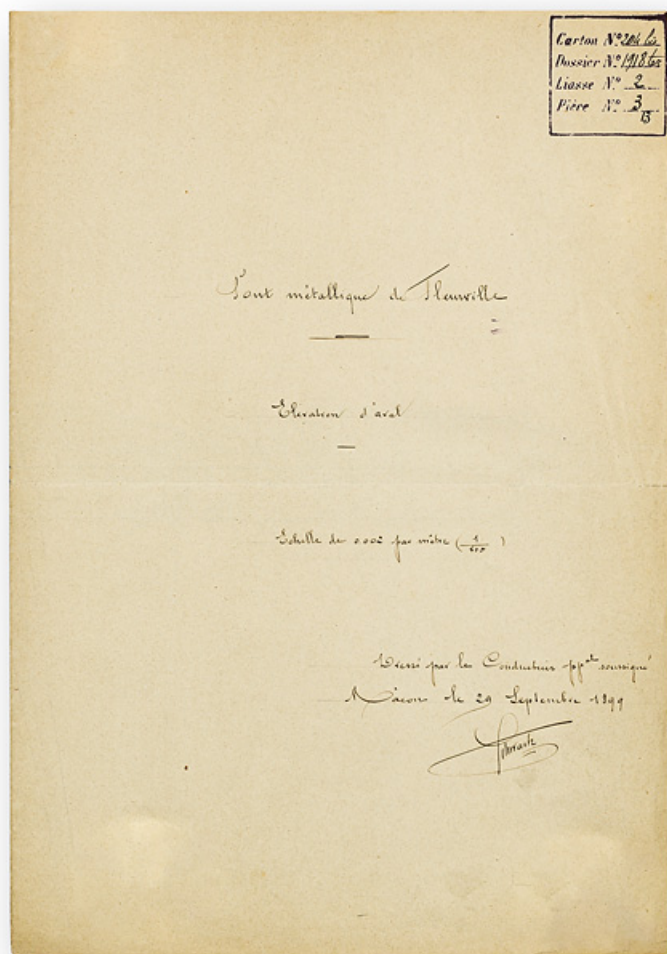 Carton Nº 204 bis
Dossier Nº 1918 ter
Liasse Nº 2
Pièce Nº 3/13
Pont métallique de Fleurville
Elévation d'aval
Echelle de 0.002 par mètre (1/500)
Dressé par le Conducteur pp.al soussigné
Mâcon le 29 Septembre 1899